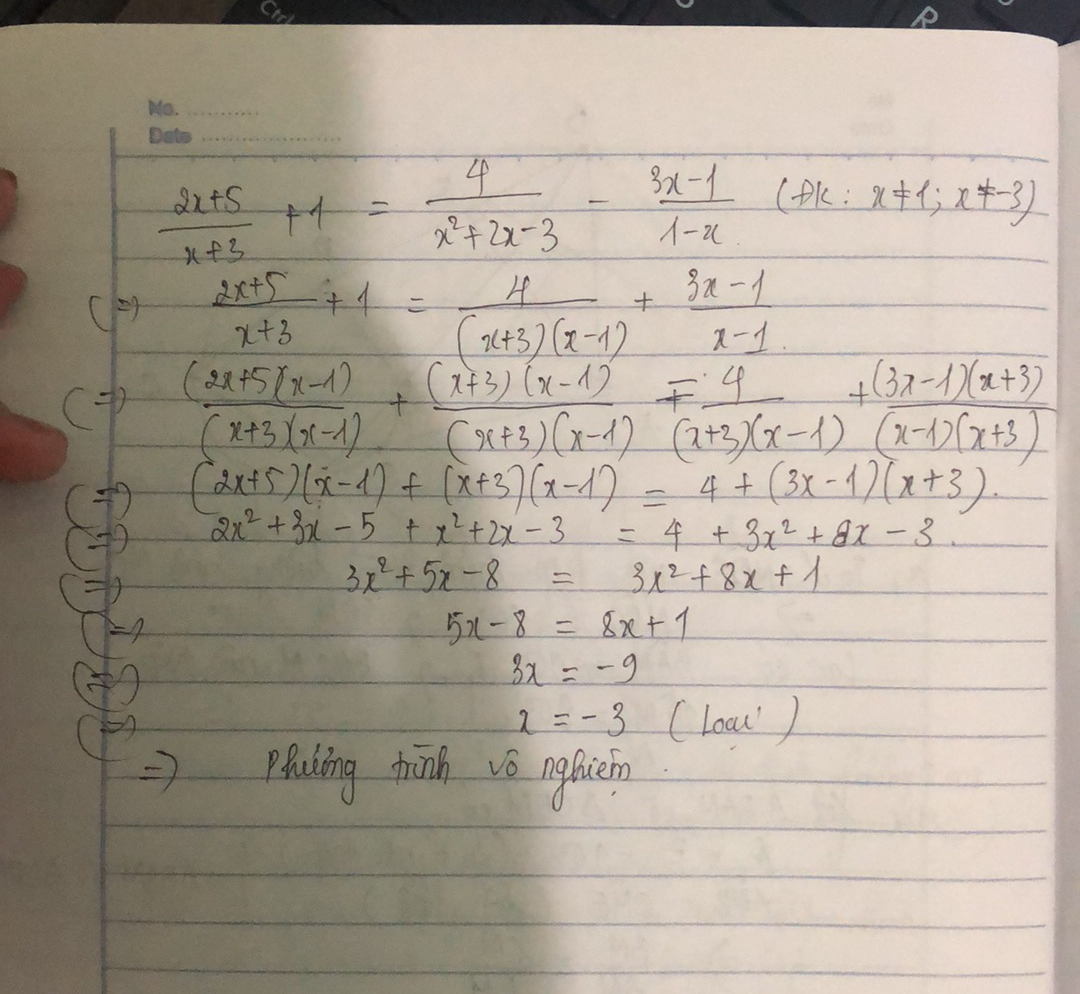 Ctrl
R
No. ............
Date ........................
\frac{2x+5}{x+3} + 1 = \frac{4}{x²+2x-3} - \frac{3x-1}{1-x} (ĐK: x≠1; x≠-3)
(=) \frac{2x+5}{x+3} + 1 = \frac{4}{(x+3)(x-1)} + \frac{3x-1}{x-1}.
(=) \frac{(2x+5)(x-1)}{(x+3)(x-1)} + \frac{(x+3)(x-1)}{(x+3)(x-1)} = \frac{4}{(x+3)(x-1)} + \frac{(3x-1)(x+3)}{(x-1)(x+3)}
(=) (2x+5)(x-1) + (x+3)(x-1) = 4 + (3x-1)(x+3).
(=) 2x² + 3x - 5 + x² + 2x - 3 = 4 + 3x² + 8x - 3.
(=) 3x² + 5x - 8 = 3x² + 8x + 1
(=) 5x - 8 = 8x + 1
(=) 3x = -9
(=) x = -3 (Loại)
=> Phương trình vô nghiệm.